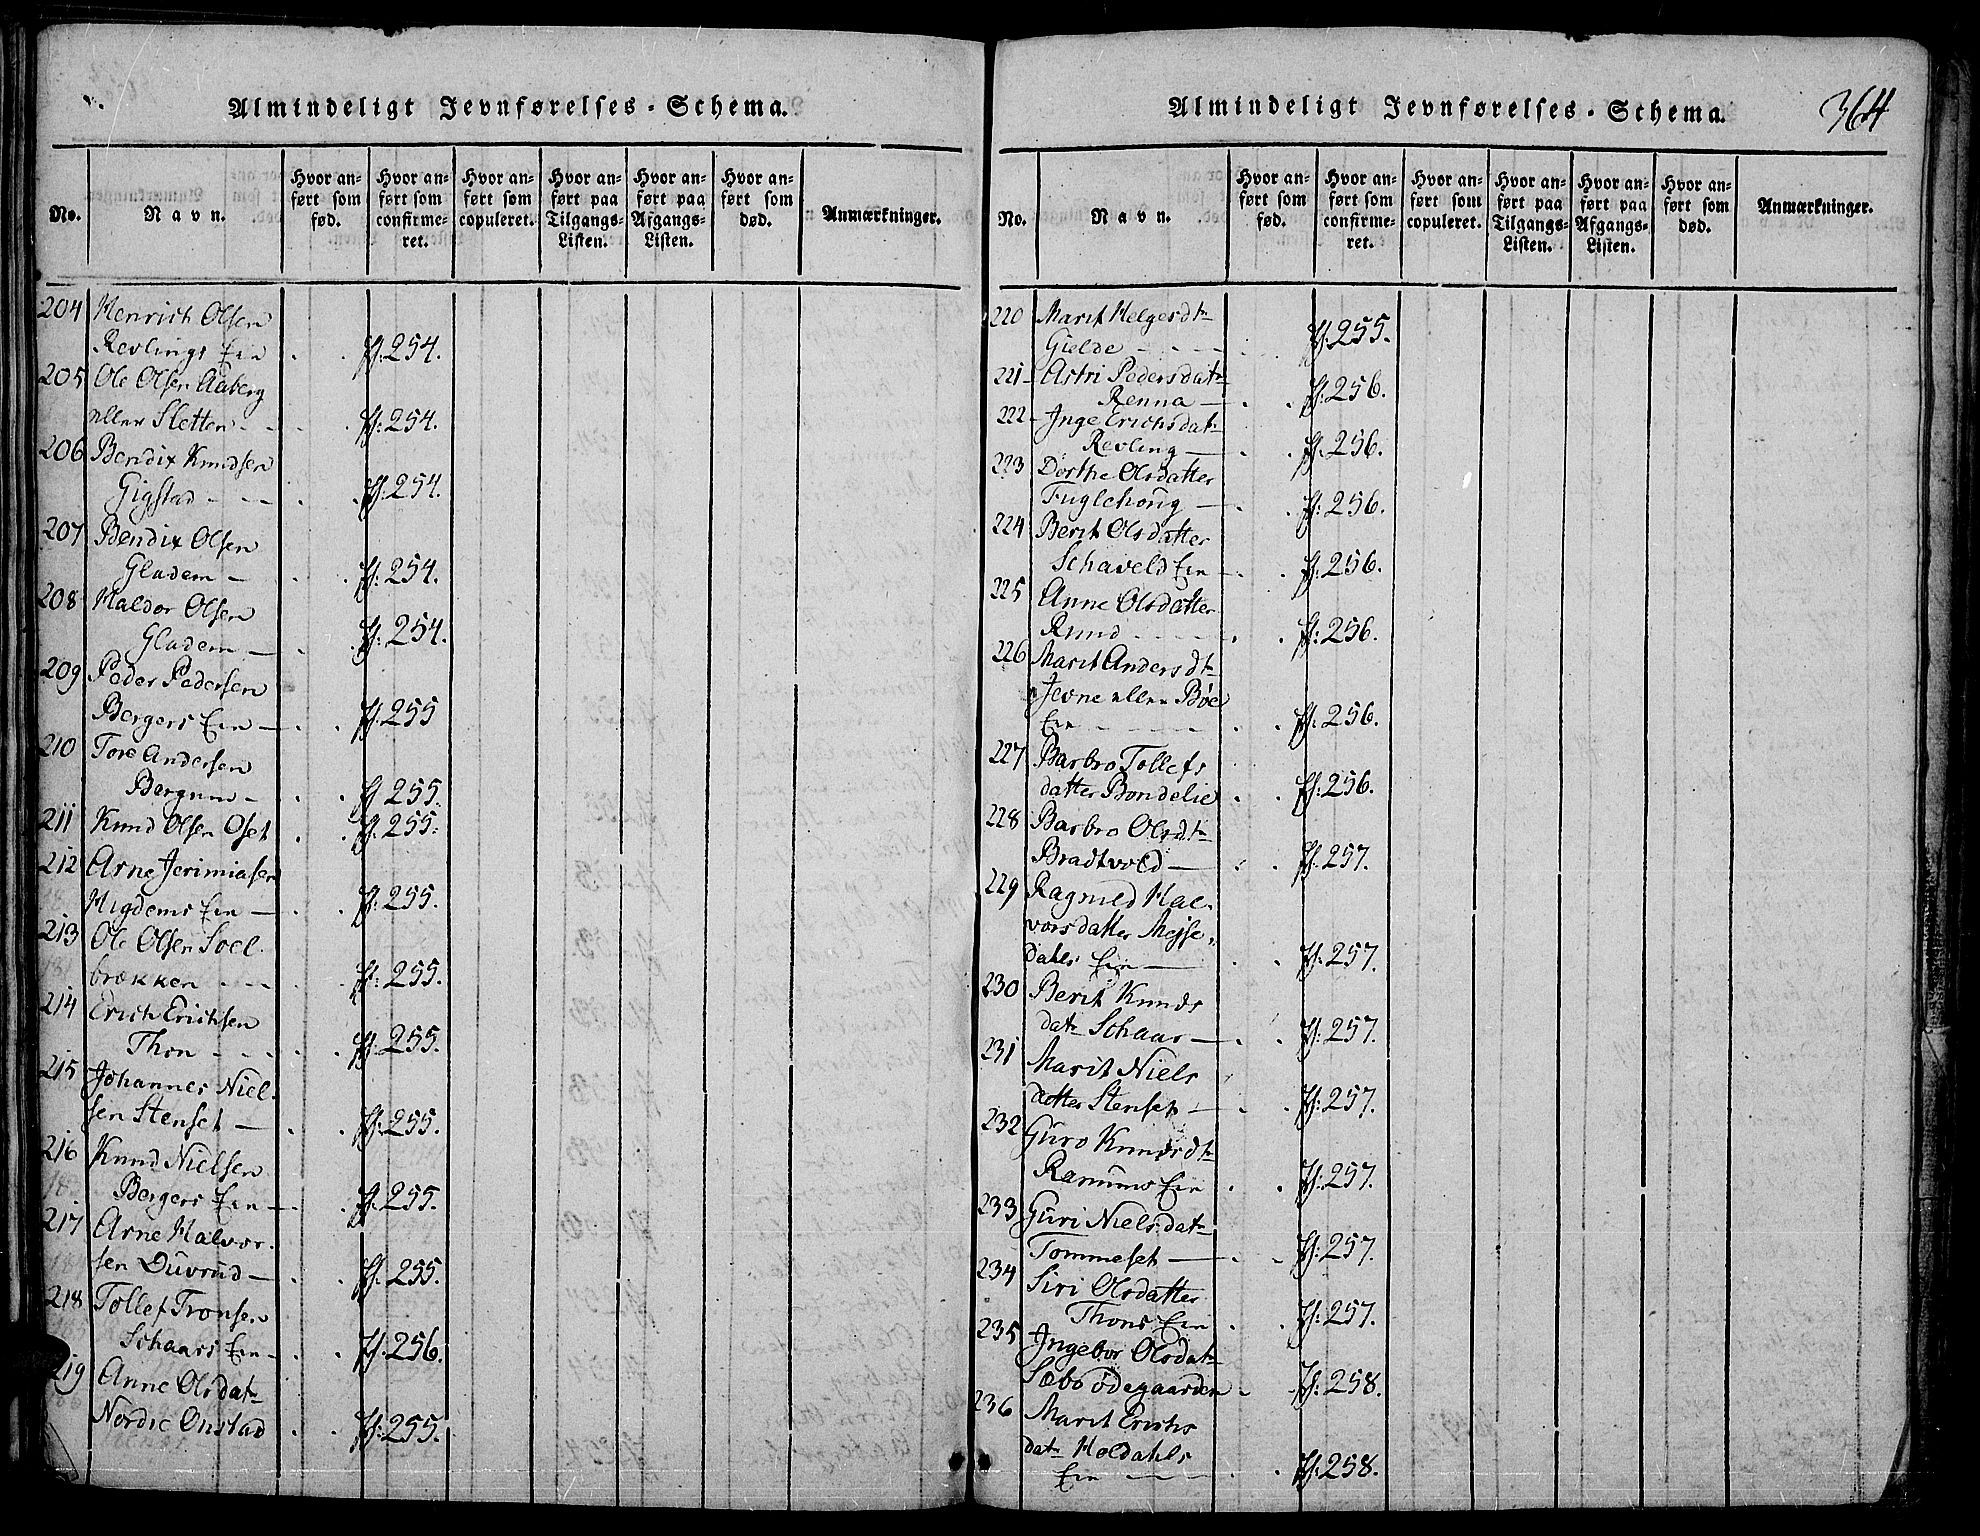 Almindeligt Jevnførelses-Schema.
No.
Navn.
Hvor an-
ført som
fød.
Hvor an-
ført som
confirme-
ret.
Hvor an-
ført som
copuleret.
Hvor an-
ført paa
Tilgangs-
Listen.
Hvor an-
ført paa
Afgangs-
Listen.
Hvor an-
ført som
død.
Anmærkninger.
204 Henrich Olsen
Revlings Eie f: 254.
205 Ole Olsen Aaberg
eller Sletten f: 254.
206 Bendix Knudsen
Gigstad f: 254.
207 Bendix Olsen
Gladem f: 254.
208 Haldor Olsen
Gladem f: 254.
209 Peder Pedersen
Bergers Eie f: 255
210 Tore Andersen
Bergum f 255.
211 Knud Olsen Oset f: 255.
212 Arne Jerimiasen
Higdems Eie f: 255.
213 Ole Olsen Soel-
brækken f: 255.
214 Erich Erichsen
Thon f: 255.
215 Johannes Niel-
sen Stenset f: 255.
216 Knud Nielsen
Bergers Eie f: 255.
217 Arne Halvor-
sen Duvrud f: 255.
218 Tollef Tronsen
Schaars Eie f: 256.
219 Anne Olsdatr
Nordre Onstad f: 255.
Almindeligt Jevnførelses-Schema.
364
No.
Navn.
Hvor an-
ført som
fød.
Hvor an-
ført som
confirme-
ret.
Hvor an-
ført som
copuleret.
Hvor an-
ført paa
Tilgangs-
Listen.
Hvor an-
ført paa
Afgangs-
Listen.
Hvor an-
ført som
død.
Anmærkninger.
220 Marit Helgesdtr
Gielde f: 255.
221 Astri Pedersdatr
Renna f: 256.
222 Inge Erichsdatr
Revling f: 256.
223 Dorthe Olsdatter
Fuglehoug f: 256.
224 Berit Olsdatter
Schaveld Eie f: 256.
225 Anne Olsdatter
Ruud f: 256.
226 Marit Andersdtr
Jevne eller Bøe
Eie f: 256.
227 Barbro Tollefs
datter Bondelie f: 256.
228 Barbro Olsdtr
Bradtvold f: 257.
229 Ragnild Hal-
vorsdatter Mejse-
dahls Eie f: 257.
230 Berit Knuds
datr Schaar f: 257.
231 Marit Niels
datter Stenset f: 257.
232 Guro Knudsdtr
Ramums Eie f: 257.
233 Guri Nielsdatr
Tommeset f: 257.
234 Siri Olsdatter
Thons Eie f: 257.
235 Ingebor Olsdatr
Sæbo ødegaarden f: 258.
236 Marit Erichs
datr Holdahls
Eie f: 258.